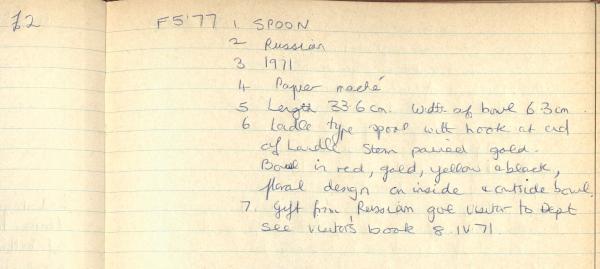 £2 F5'77 1 SPOON
2 Russian
3 1971
4 Papier maché
5 Length 33.6cm. Width of bowl 6.3cm
6 Ladle type spoon with hook at end
of handle. Stem painted gold.
Bowl in red, gold, yellow & black,
floral design on inside & outside bowl.
7. Gift from Russian give visitor to Dept
see visitors book 8.IV.71